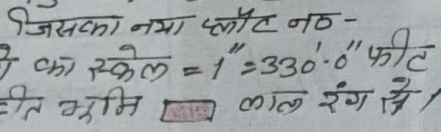 जिसका नया प्लॉट नठ -
का स्केल = 1" = 330'-0" फीट
भूमि लाल रंग से।